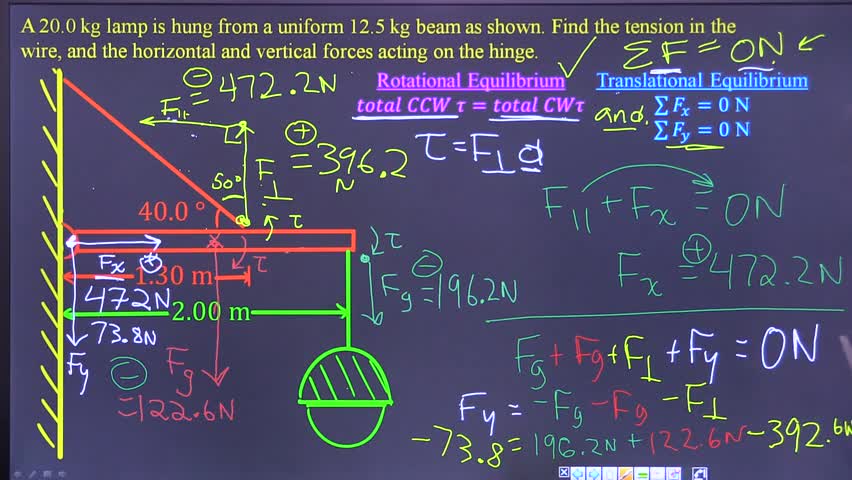 A 20.0 kg lamp is hung from a uniform 12.5 kg beam as shown. Find the tension in the
wire, and the horizontal and vertical forces acting on the hinge.
ΣF = 0N
Rotational Equilibrium
total CCW τ = total CWτ
and
Translational Equilibrium
∑ Fx = 0 N
∑ Fy = 0 N
⊖ = 472.2N
F||
τ = F⊥ d
⊕
F⊥ = 396.2
N
50°
40.0 °
τ
F|| + Fx = 0N
Fx ⊕ = 472.2N
τ
τ
Fx ⊕
1.30 m
472N
2.00 m
73.8N
Fy
Fg ⊖ = 196.2N
Fg
⊖ = 122.6N
Fg + Fg + F⊥ + Fy = 0N
Fy = -Fg -Fg -F⊥
-73.8 = 196.2N + 122.6N - 392.6N